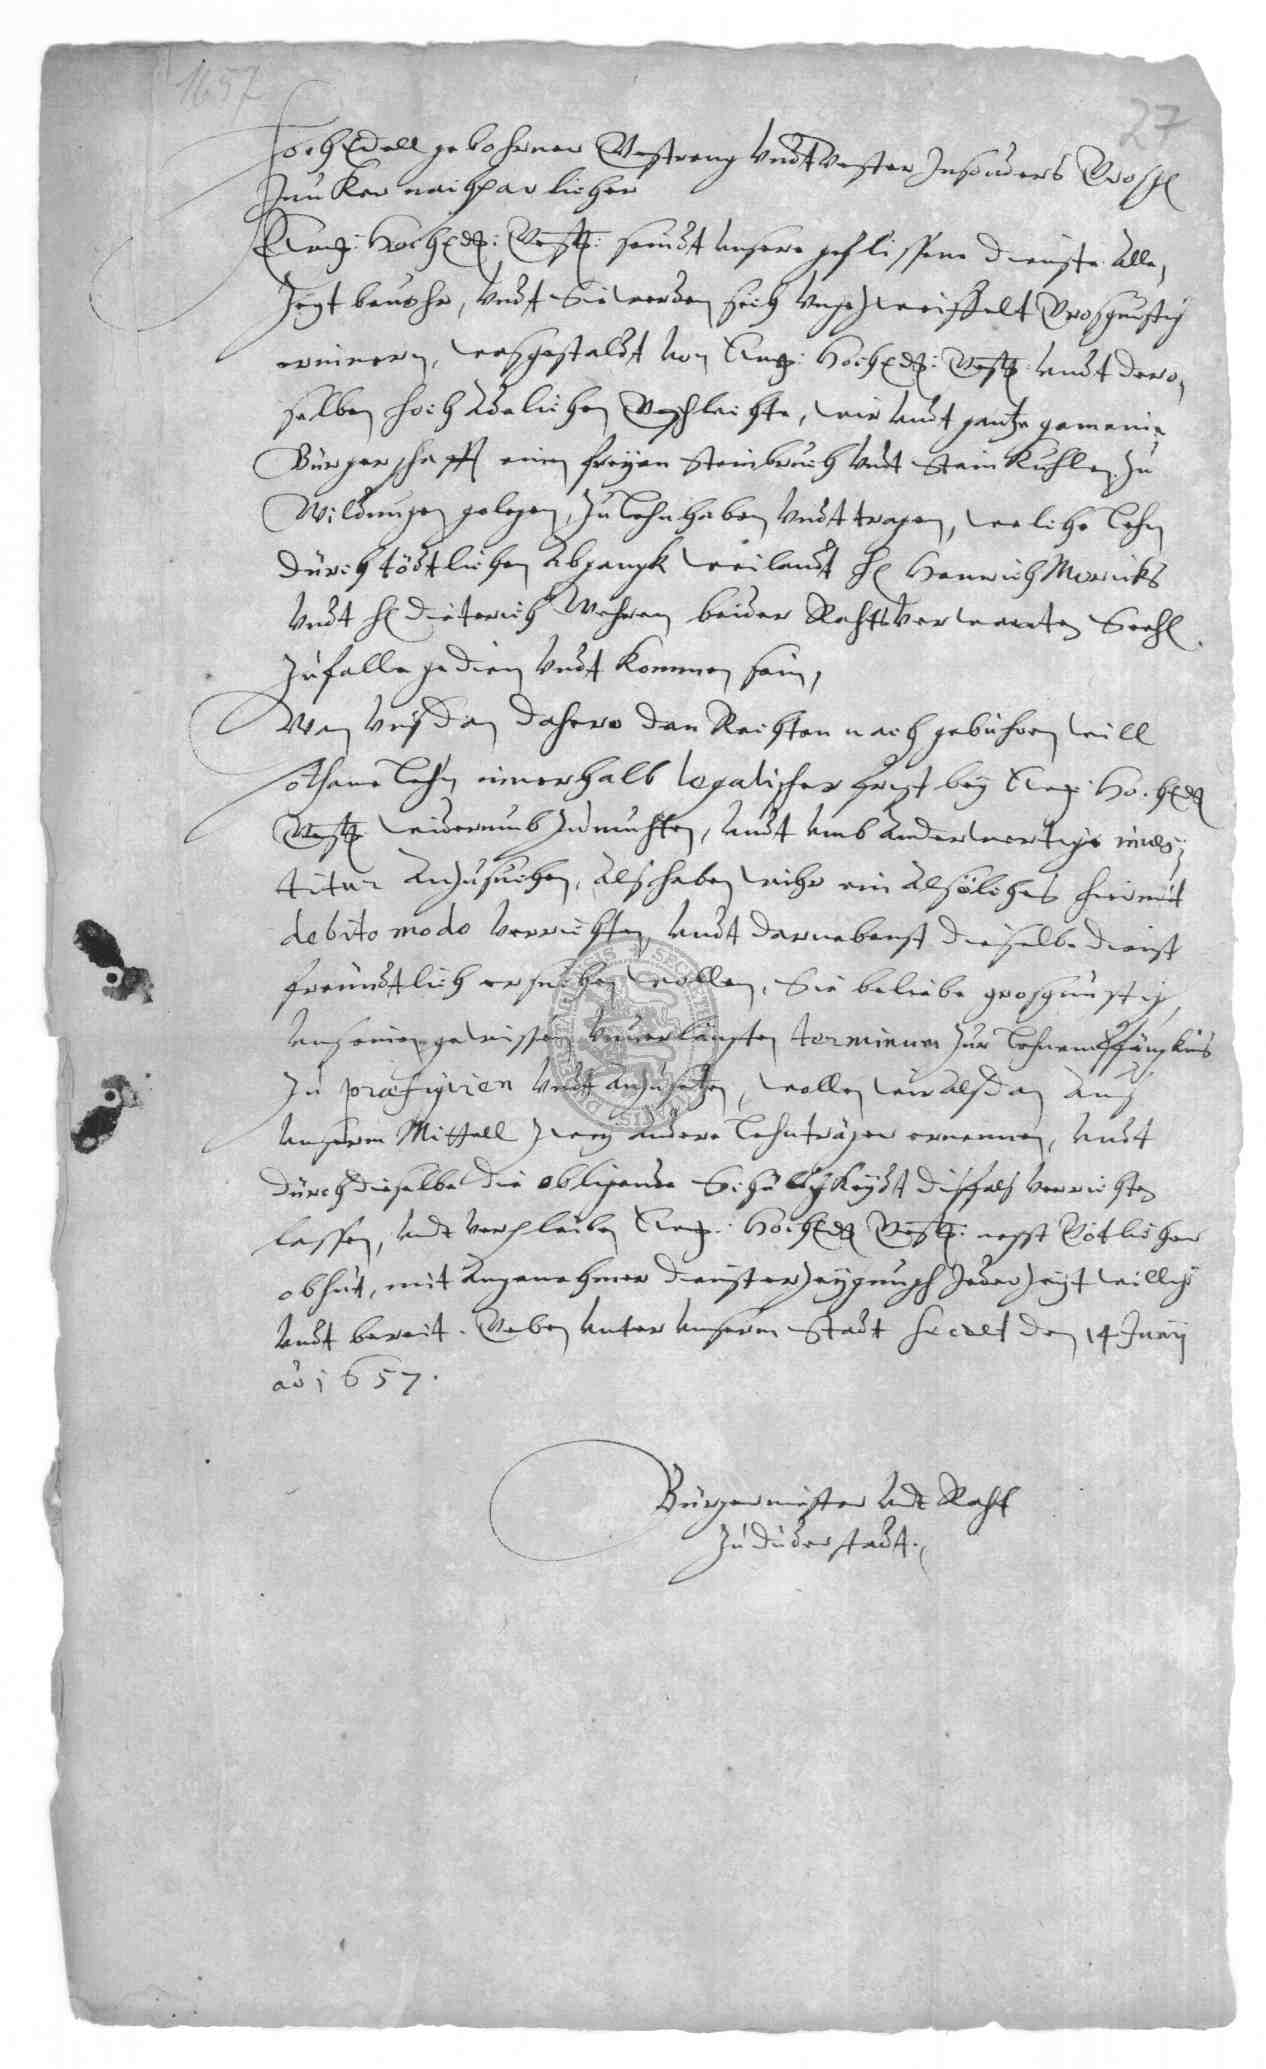 1657
27
HochEdell gebohrner Gestreng undt Vester Insonders Grosg
Junker nachparlicher
Ewg: HochEdg: Gestg: seindt unsere geflissene dienste alle,
Zeyt bevohr, undt Sie werden sich ungezweiffelt Grosgunstig
erinnern, wasgestaldt von Ewg: HochEdg: Gestg: undt dero,
selben hochadelichen Geschlechte, wir undt gantze gemeine
Bürgerschafft einen freyen Steinbruch undt Steinkuhlen zu
gelegen, zu Lehn haben undt tragen, welche Lehn
durch tödtlichen Abgangk weilandt H Henrich Moricks
undt H Dieterich Wehren beider Rahtsverwanten Seehl.
Zufalle gedien undt kommen sein,
Wen unß dan dahero den Rechten nach gebühren will
sothane Lehn innerhalb legalischer frist bey Ewg: HochEdg
Gestg widerumb zumuhten, undt umb anderwertige inves,
titur anzusuchen, Als haben wihr ein alsölches hiermit
debito modo verrichten, undt darnebenst dieselbe dienst
freundtlich ersuchen wollen, Sie beliebe grosgunstig,
uns einen gewissen unverlängten terminum zur Lehnempfängknis
zu præfigiren undt anzusetzen, wollen wir alßdan auß
unserm Mittell zwey andere Lehnträger ernennen, undt
durch dieselbe die obligende Schuldigkeydt dißfals verrichten
lassen, undt verpleiben Ewg: HochEdg Gestg: negst Götlicher
obhut, mit angenehmer diensterzeygungh Jederzeyt willig
undt bereit. Geben unter unserm Stadt Secret den 14 Junij
ao 1657.
Bürgermeister undt Raht
Zu Duderstadt.